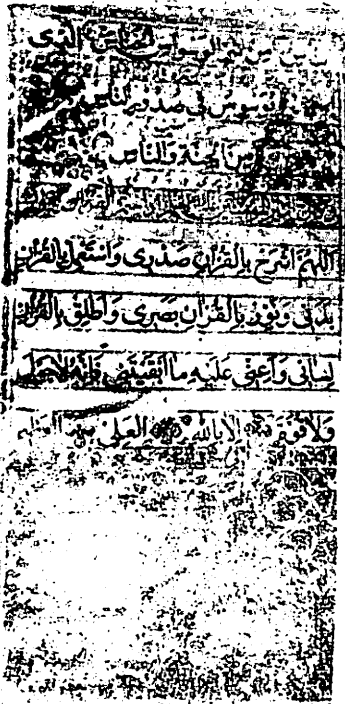 الناس من شر الوسواس الخناس الذى
يوسوس فى صدور الناس
من الجنة والناس
اللهم اشرح بالقران صدرى واستعمل بالقران
بدنى ونور بالقران بصرى واطلق بالقران
لسانى واعنى عليه ما ابقيتنى فانه لاحول
ولا قوة الا بالله العلى العظيم